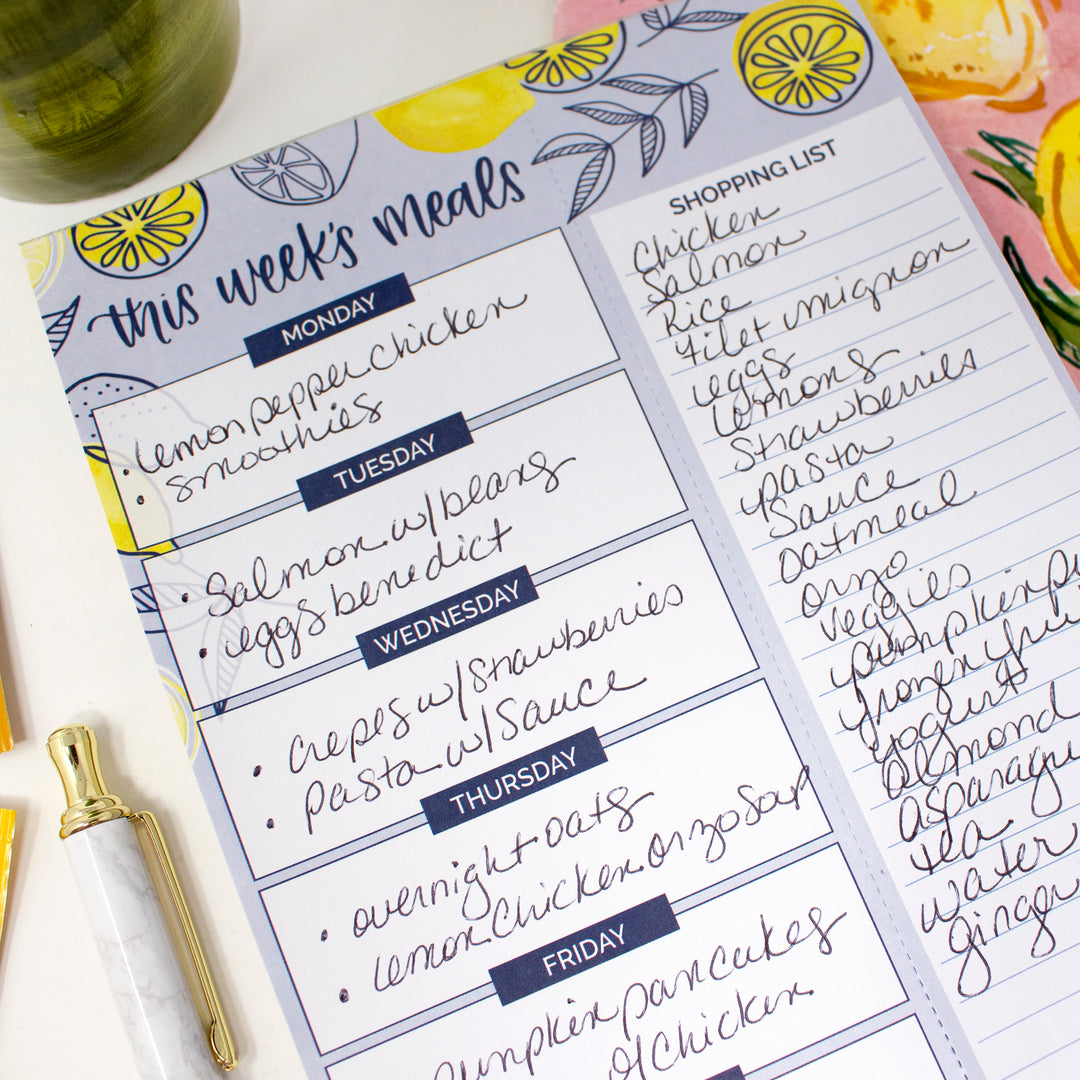 this week's meals
MONDAY
lemon pepper chicken
smoothies
TUESDAY
Salmon w/beans
eggs benedict
WEDNESDAY
crepes w/strawberries
pasta w/sauce
THURSDAY
overnight oats
lemon chicken orzo soup
FRIDAY
pumpkin pancakes
chicken
SHOPPING LIST
Chicken
Salmon
Rice
filet mignon
eggs
lemons
Strawberries
pasta
Sauce
oatmeal
orzo
veggies
pumpkin
frozen
yogurt
almond
tea
water
ginger